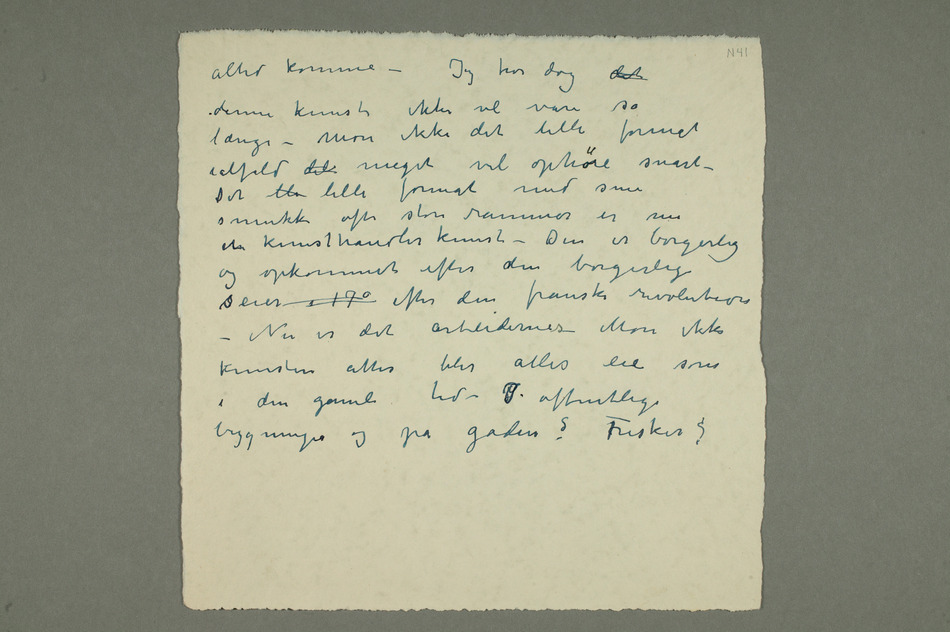 N41
altid komme – Jeg tror dog det
denne kunst ikke vil vare så
længe – Mon ikke det lille format
ialfeld det meget vel ophöre snart –
Det lille format med sine
smukke ofte store rammer er nu
en kunsthandlerkunst – Den er borgerlig
og opkommet efter den borgerlige
Seier i 17° efter den franske revolution
– Nu er det arbeidernes – Mon ikke
kunsten atter blir alles eie som
i den gamle tid – I offentlige
bygninger og på gaden? Frisker?